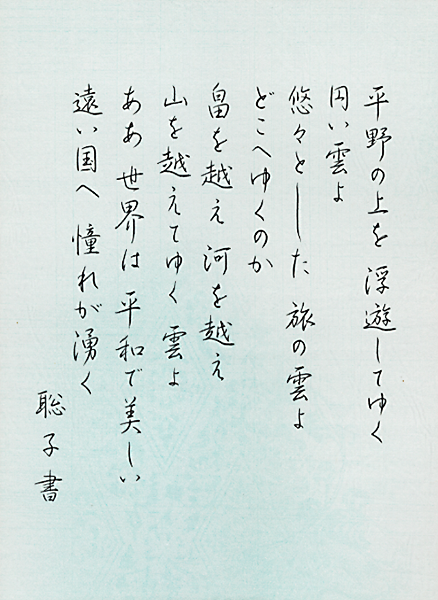 平野の上を 浮遊してゆく
円い雲よ
悠々とした 旅の雲よ
どこへゆくのか
畠を越え 河を越え
山を越えてゆく 雲よ
ああ 世界は 平和で美しい
遠い国へ 憧れが湧く
聡子書